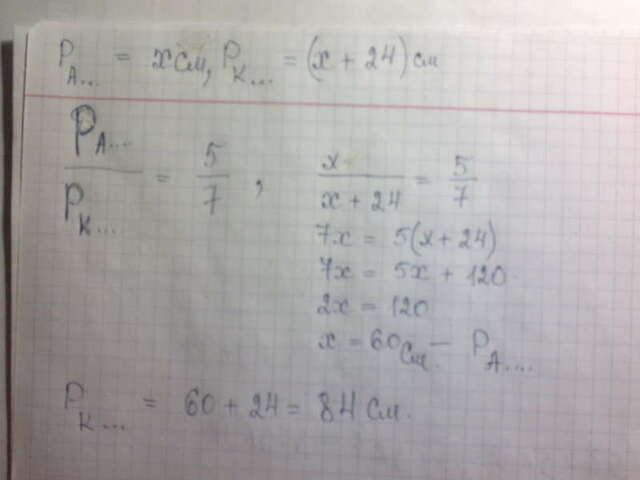 P_A... = x см, P_K... = (x + 24) см
P_A.../P_K... = 5/7, x/(x + 24) = 5/7
7x = 5(x + 24)
7x = 5x + 120
2x = 120
x = 60 см. — P_A....
P_K... = 60 + 24 = 84 см.